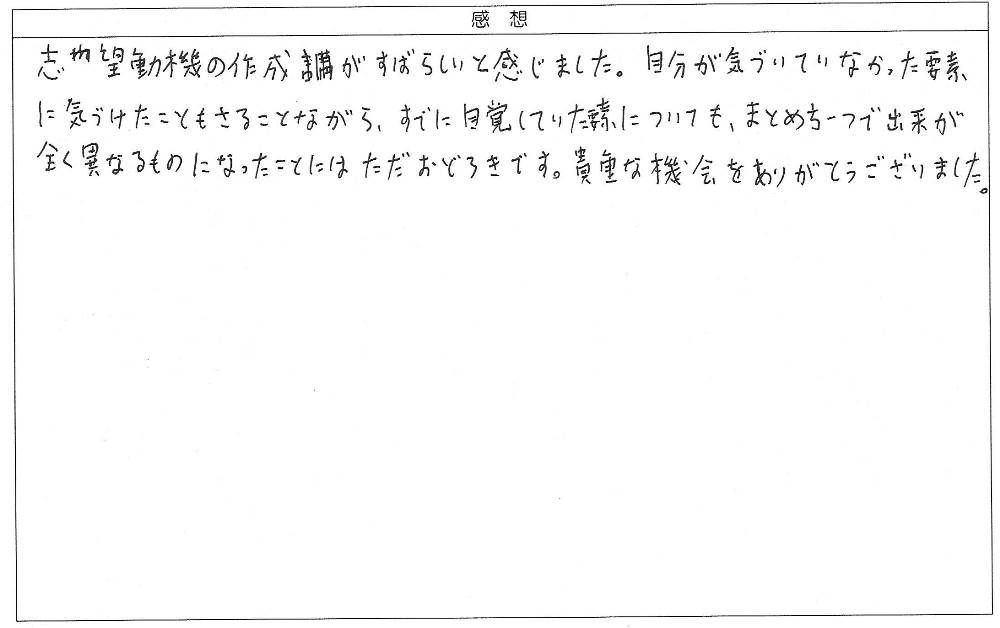 感想
志望動機の作成講がすばらしいと感じました。自分が気づいていなかった要素
に気づけたこともさることながら、すでに自覚していた要素についても、まとめ方一つで出来が
全く異なるものになったことにはただおどろきです。貴重な機会をありがとうございました。